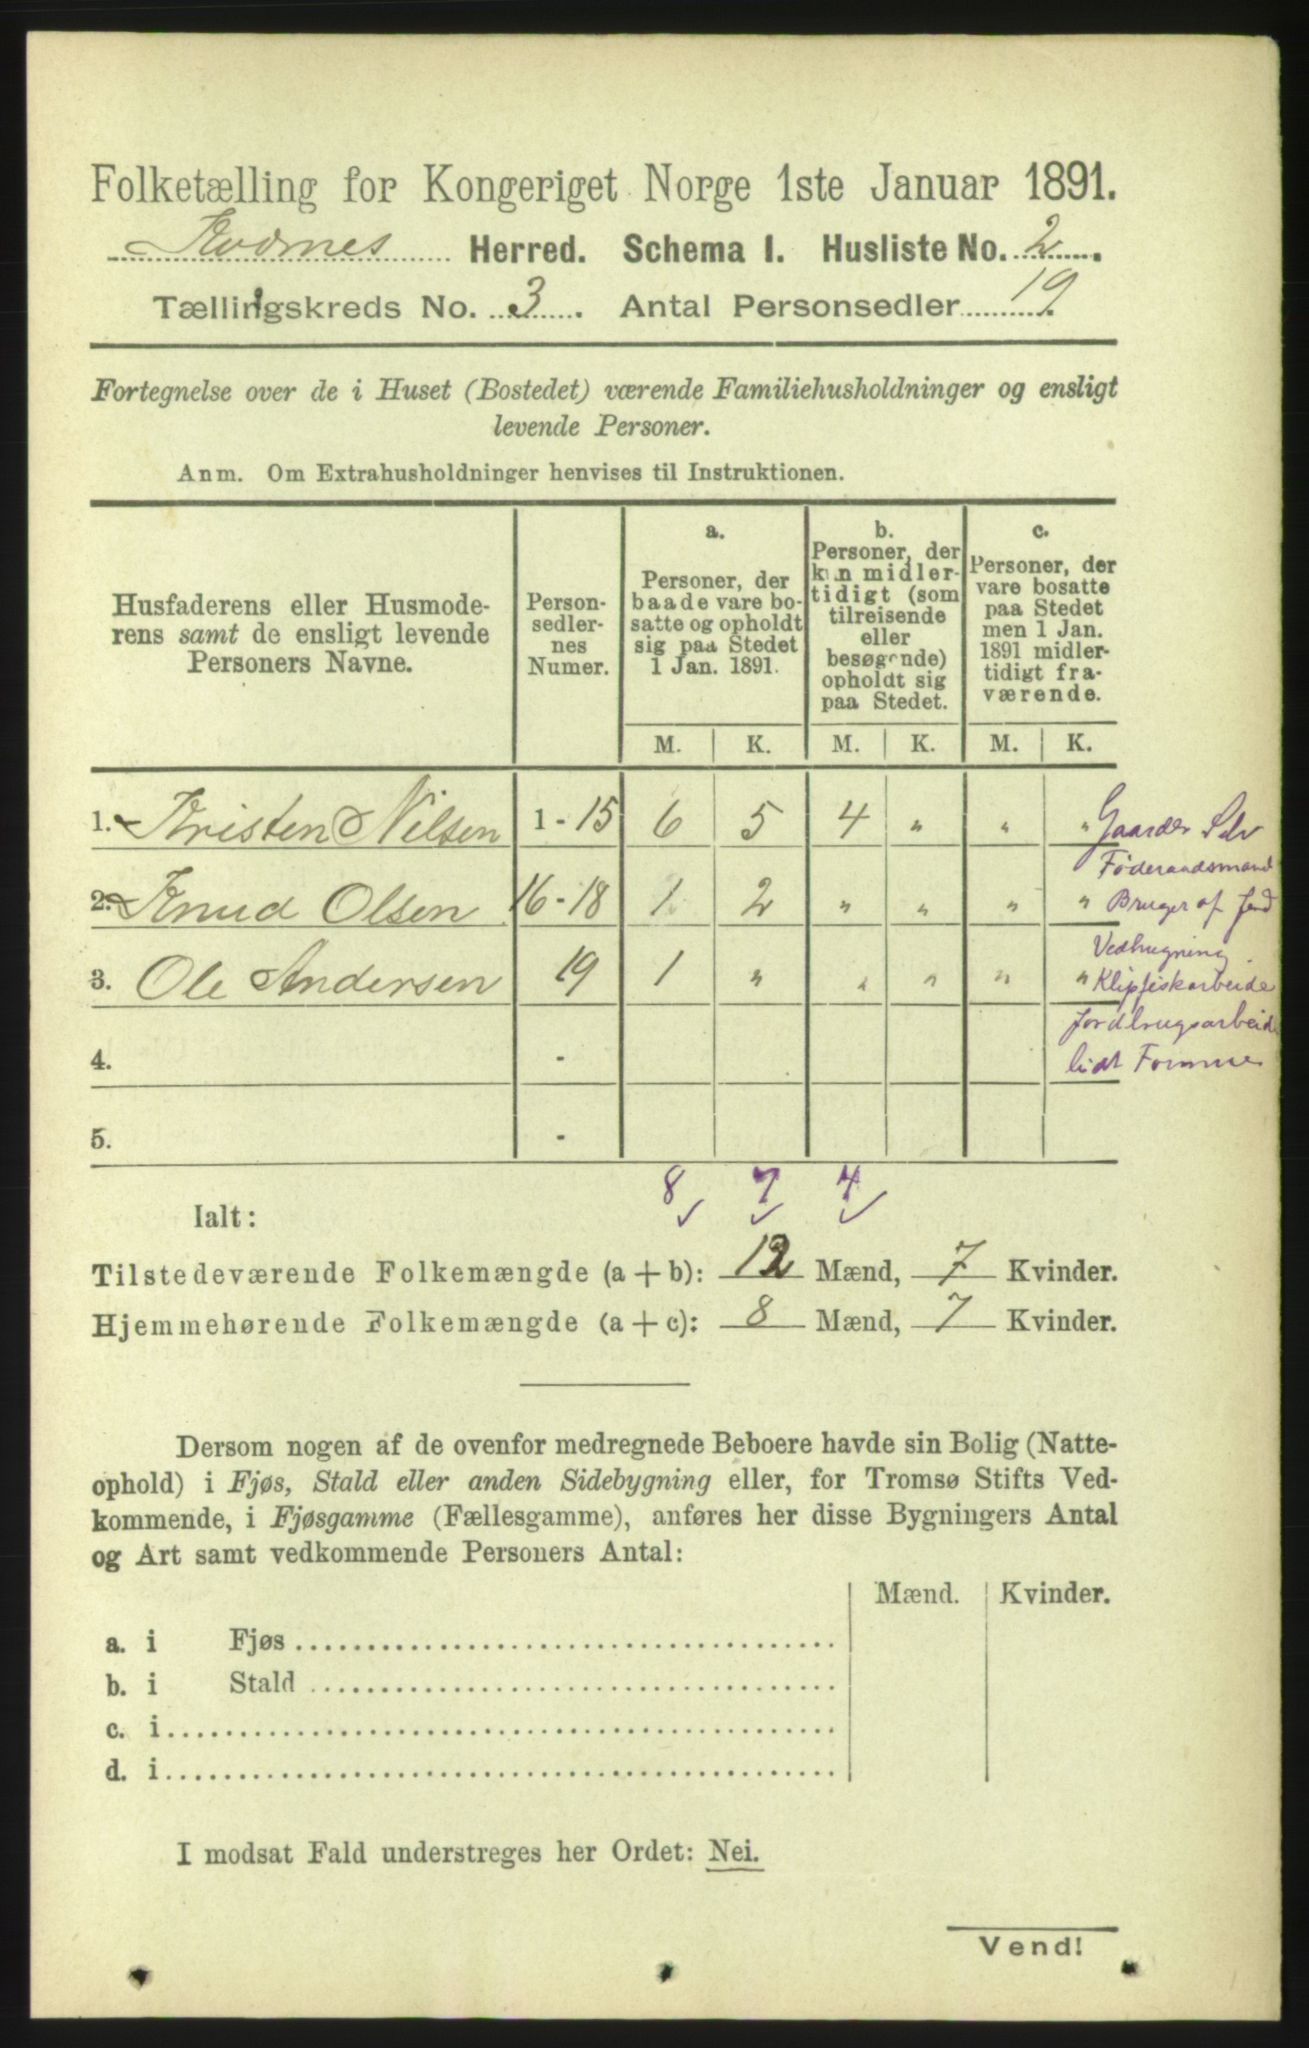 Folketælling for Kongeriget Norge 1ste Januar 1891.
Kvernes Herred. Schema I. Husliste No. 2.
Tællingskreds No. 3. Antal Personsedler 19
Fortegnelse over de i Huset (Bostedet) værende Familiehusholdninger og ensligt
levende Personer.
Anm. Om Extrahusholdninger henvises til Instruktionen.
Husfaderens eller Husmode-
rens samt de ensligt levende
Personers Navne.
Person-
sedler-
nes
Numer.
a.
Personer, der
baade vare bo-
satte og opholdt
sig paa Stedet
1 Jan. 1891.
b.
Personer, der
kun midler-
tidigt (som
tilreisende
eller
besøgende)
opholdt sig
paa Stedet.
c.
Personer, der
vare bosatte
paa Stedet
men 1 Jan.
1891 midler-
tidigt fra-
værende.
M. K. M. K. M. K.
1. Kristen Nilsen 1 - 15 6 5 4 " " " Gaardbr Selv
Føderaadsmand
2. Knud Olsen 16 - 18 1 2 " " " " Bruger af Jord
Vedhugning
3. Ole Andersen 19 1 " " " " " Klipfiskarbeide
Jordbrugsarbeid
4. - lidt Tømmer
5. -
8 7 4
Ialt:
Tilstedeværende Folkemængde (a + b): 12 Mænd, 7 Kvinder.
Hjemmehørende Folkemængde (a + c): 8 Mænd, 7 Kvinder.
Dersom nogen af de ovenfor medregnede Beboere havde sin Bolig (Natte-
ophold) i Fjøs, Stald eller anden Sidebygning eller, for Tromsø Stifts Ved-
kommende, i Fjøsgamme (Fællesgamme), anføres her disse Bygningers Antal
og Art samt vedkommende Personers Antal:
Mænd. Kvinder.
a. i Fjøs
b. i Stald
c. i
d. i
I modsat Fald understreges her Ordet: Nei.
Vend!